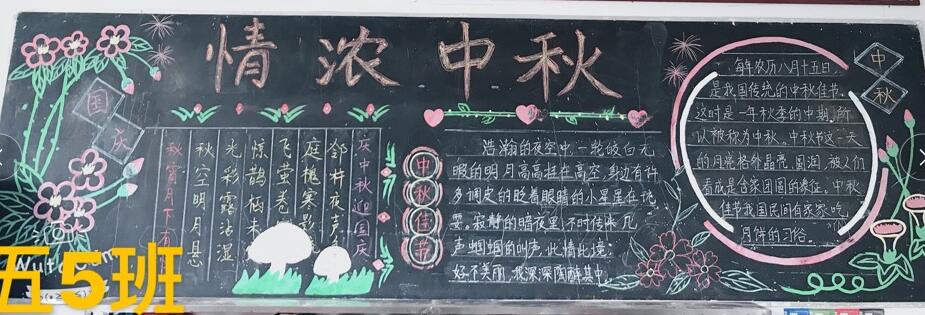 情浓中秋
国庆
中秋
庆中秋迎国庆
邻杵夜
庭槐寒影
飞萤卷
惊鹊栖未
光彩露沾湿
秋空明月悬
秋宵月下有
中秋佳节
浩瀚的夜空中,一轮皎白无
暇的明月高高挂在高空,身边有许
多调皮的眨着眼睛的小星星在玩
耍。寂静的暗夜里,不时传来几
声蝈蝈的叫声,此情此境
好不美丽,我深深陶醉其中
每年农历八月十五日,
是我国传统的中秋佳节。
这时是一年秋季的中期,所
以被称为中秋。中秋节这一天
的月亮格外晶亮、圆润,被人们
看成是合家团圆的象征。中秋
佳节我国民间有家家吃
月饼的习俗。
五5班